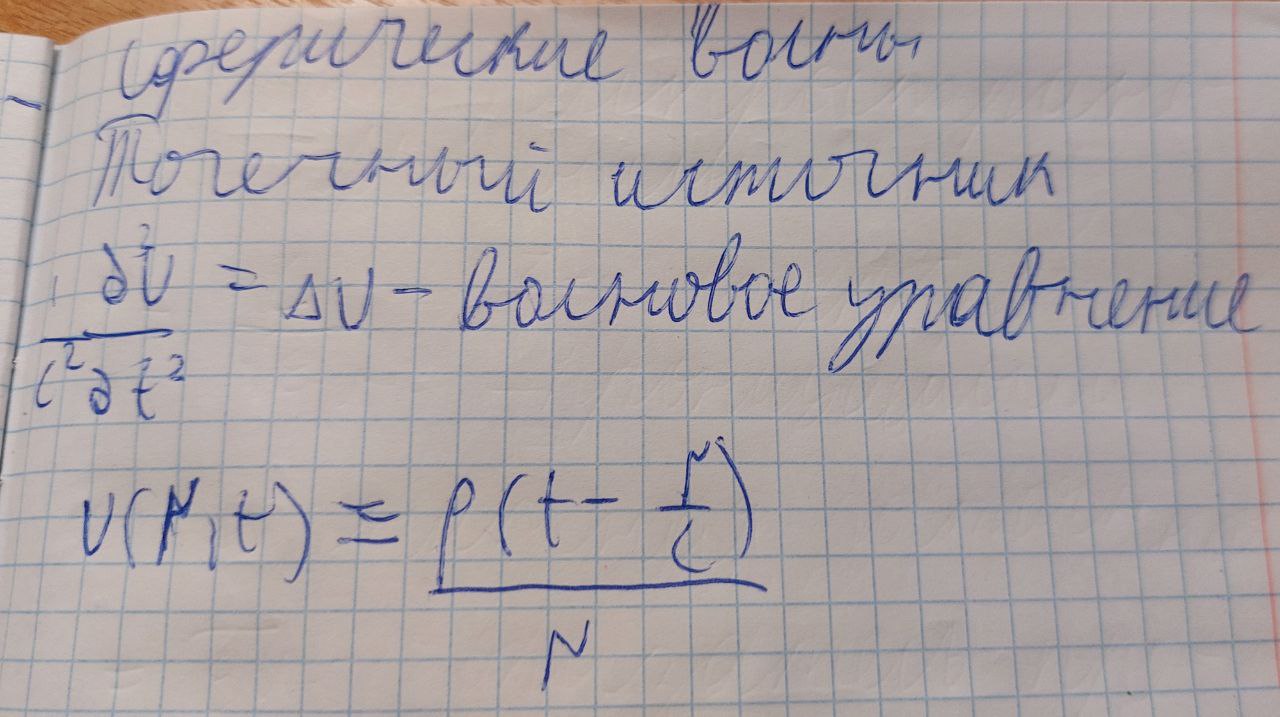 Сферические волны
Точечный источник
1 ∂²U / c² ∂t² = ΔU – волновое уравнение
U(r,t) = ρ(t - r/c) / r